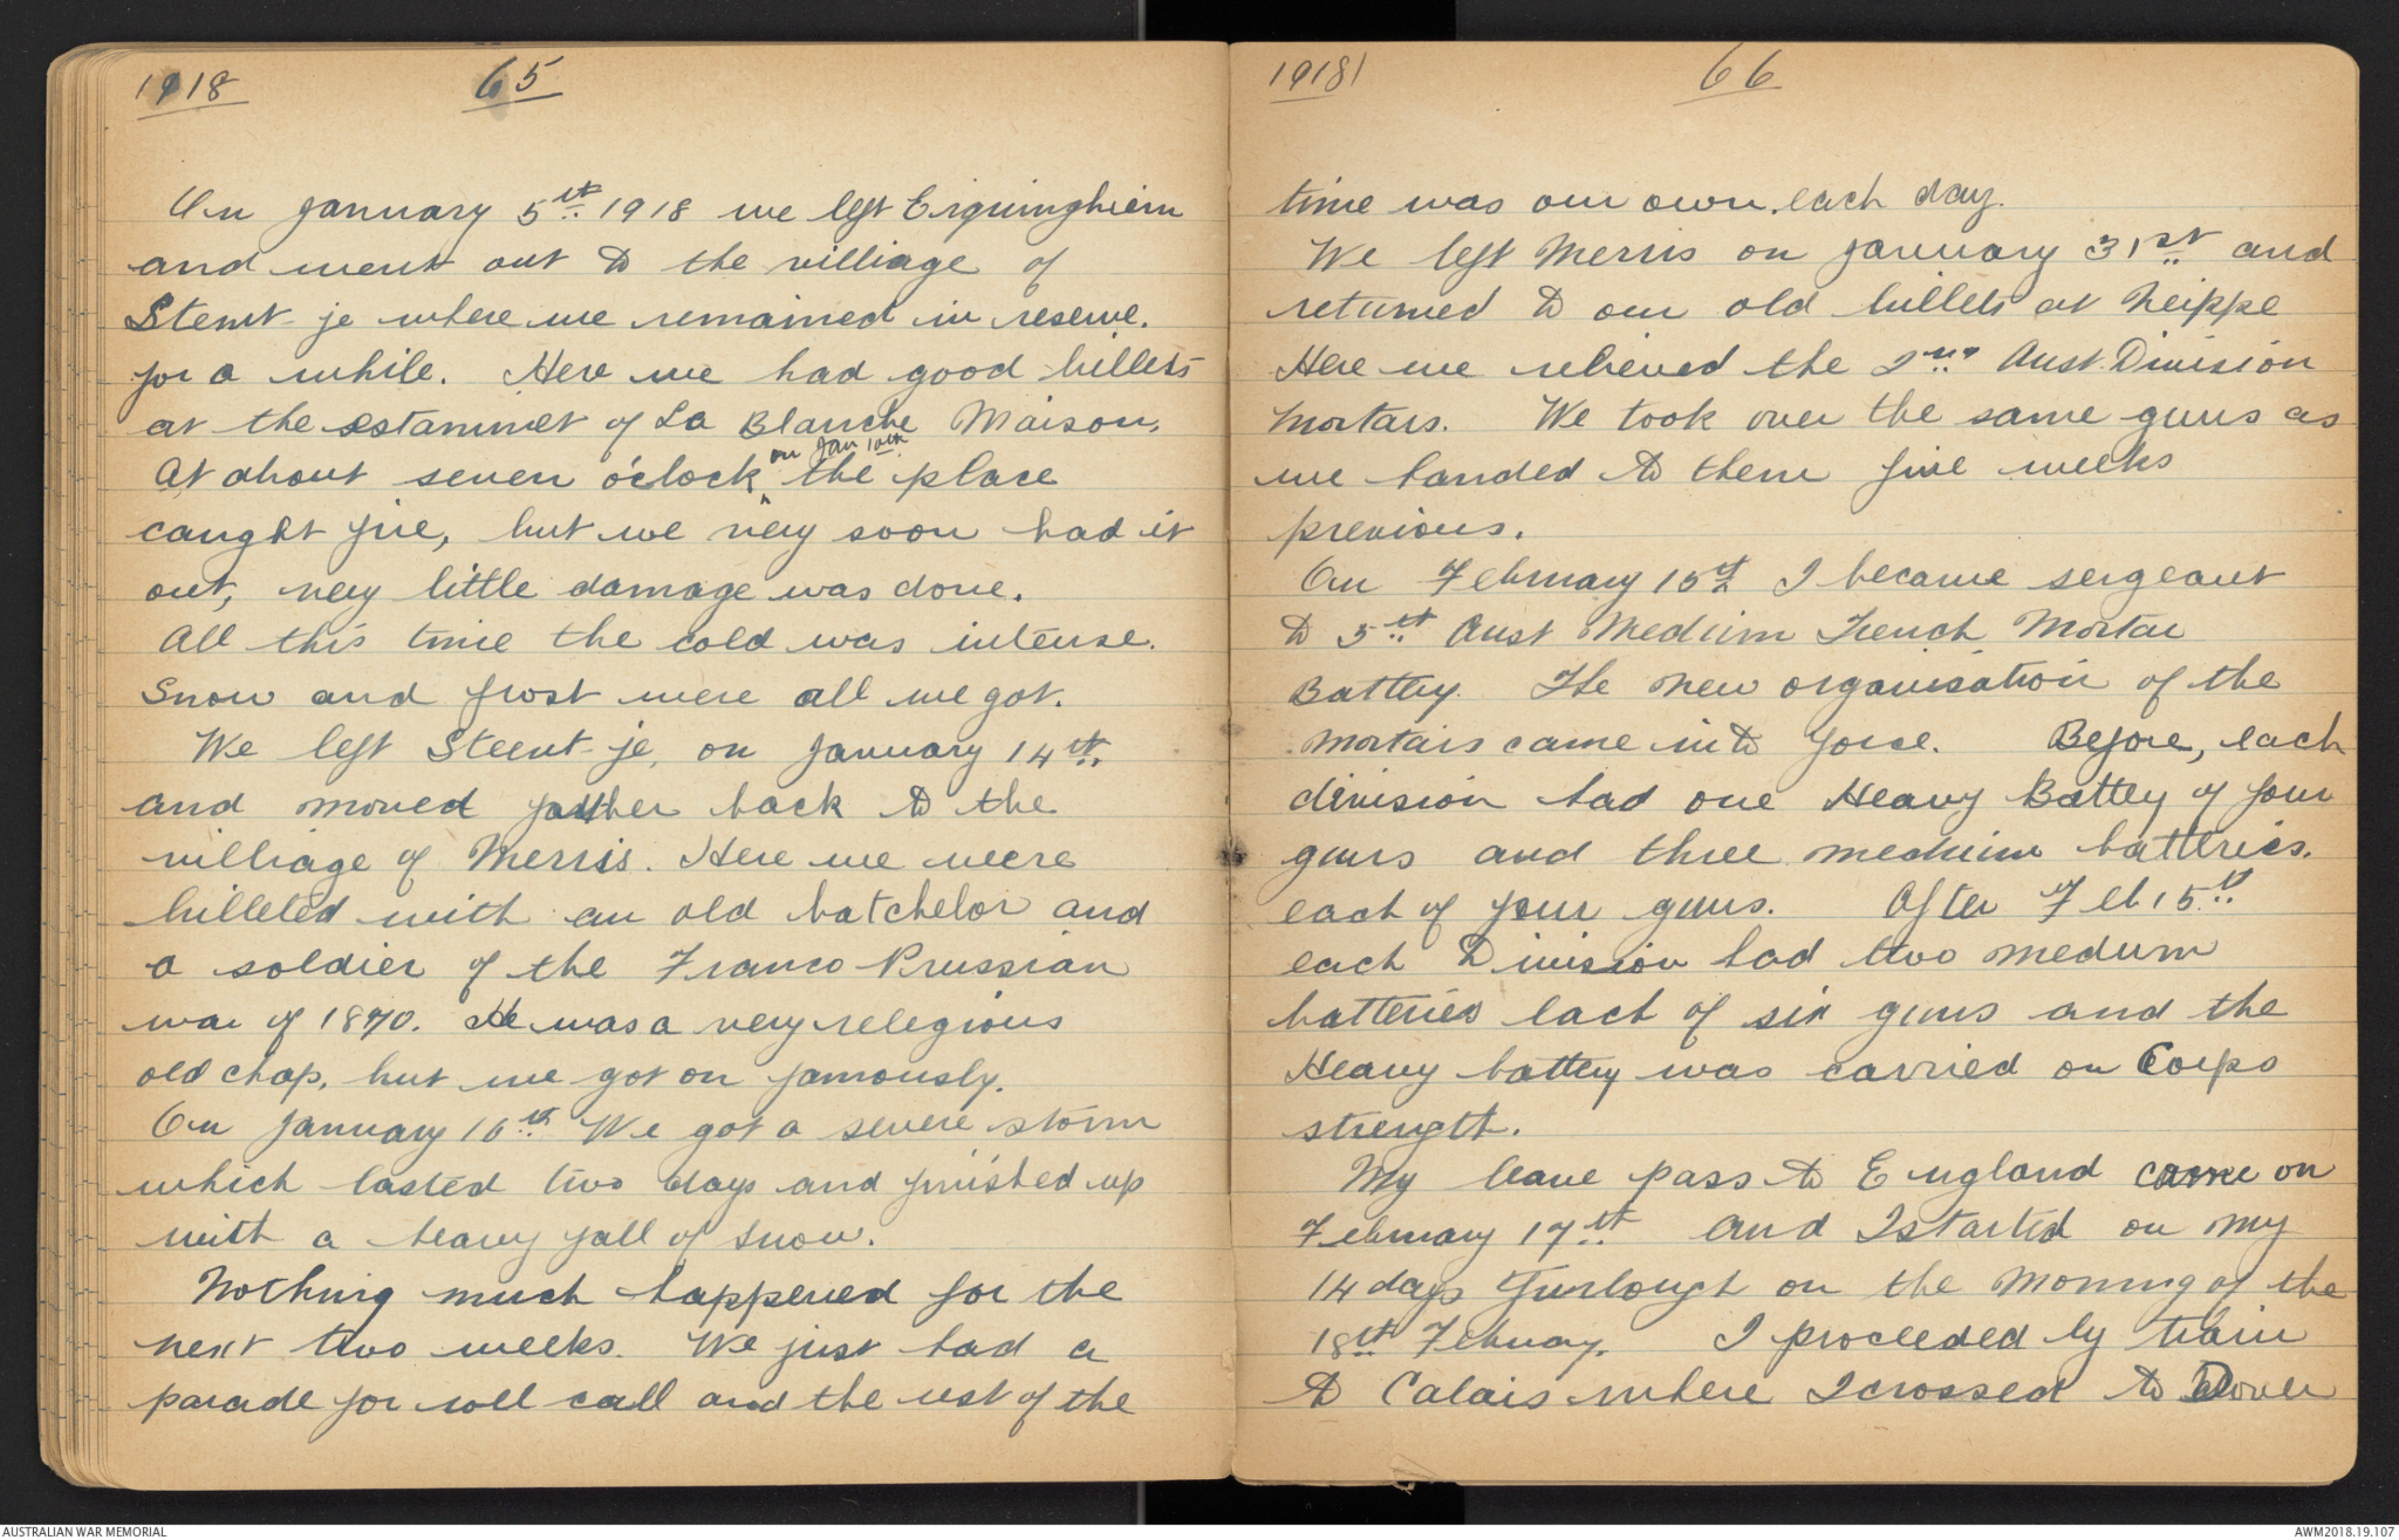 1918 65
On January 5th 1918 we left Erquinghiem
and went out to the villiage of
Stent-je where we remained in reserve.
for a while. Here we had good billets
at the estaminet of La Blanche Maison.
on Jan 10th
At about seven o'clock the place
caught fire, but we very soon had it
out, very little damage was done.
All this time the cold was intense.
Snow and frost were all we got.
We left Steent-je, on January 14th.
and moved farther back to the
villiage of Merris. Here we were
billeted with an old batchelor and
a soldier of the Franco-Prussian
war of 1870. He was a very relegious
old chap, but we got on famously.
On January 16th We got a severe storm
which lasted two days and finished up
with a heavy fall of snow.
Nothing much happened for the
next two weeks. We just had a
parade for roll call and the rest of the
1918 66
time was our own. each day.
We left Merris on January 31st and
returned to our old billets at Neippe
Here we relieved the 2nd Aust. Division
Mortars. We took over the same guns as
we handed to them five weeks
previous.
On February 15th I became sergeant
to 5th Aust Medium Trench Mortar
Battery. The new organisation of the
mortars came into force. Before, each
division had one Heavy Battey of four
guns and three medium batteries.
each of four guns. After Feb 15th
each Division had two medum
batteries each of six guns and the
Heavy battery was carried on Corps
strength.
My leave pass to England came on
February 17th and I started on my
14 days furlough on the morning of the
18th Febuay. I proceeded by train
to Calais where I crossed to Dover
AUSTRALIAN WAR MEMORIAL
AWM2018.19.107